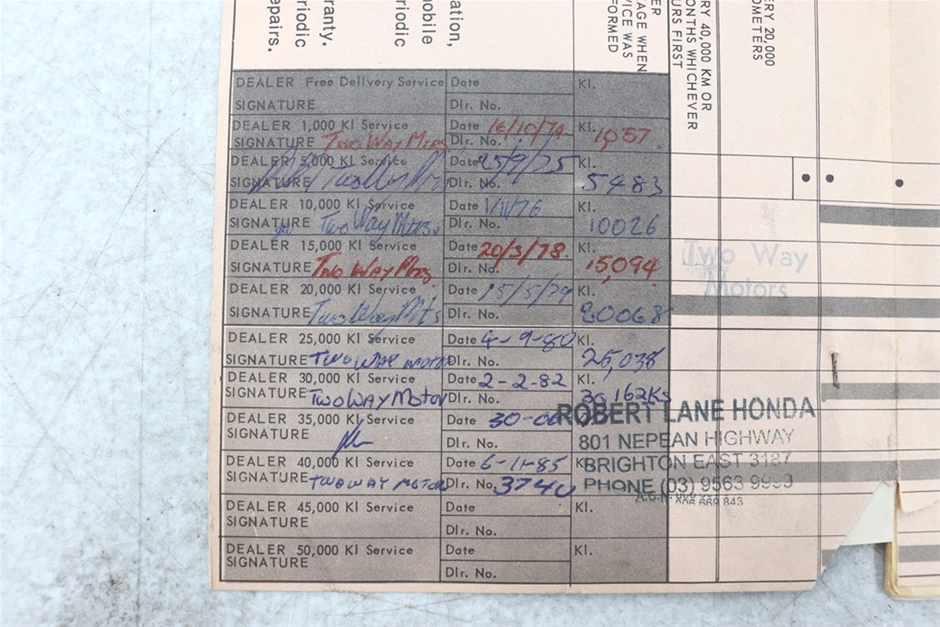 ation,
mobile
riodic
rranty.
eriodic
epairs.
AGE WHEN
ICE WAS
FORMED
RY 40,000 KM OR
ONTHS WHICHEVER
URS FIRST
ERY 20,000
OMETERS
DEALER Free Delivery Service Date Kl.
SIGNATURE Dlr. No.
DEALER 1,000 Kl Service Date 16/10/74 Kl. 1057.
SIGNATURE Two Way Mtrs Dlr. No.
DEALER 5,000 Kl Service Date 25/9/75 Kl.
SIGNATURE Two Way Dlr. No. 5483
DEALER 10,000 Kl Service Date Kl.
SIGNATURE Two Way Mtrs. Dlr. No. 10026
DEALER 15,000 Kl Service Date 20/3/78. Kl.
SIGNATURE Two Way Mtrs Dlr. No. 15,094
Two Way
Motors
DEALER 20,000 Kl Service Date 15/5/79 Kl.
SIGNATURE Two Way Mts Dlr. No. 20068
DEALER 25,000 Kl Service Date 4-9-80 Kl.
SIGNATURE TWO WAY MOTOR Dlr. No. 25,038
DEALER 30,000 Kl Service Date 2-2-82 Kl.
SIGNATURE Two Way Motor Dlr. No. 30,162Ks
DEALER 35,000 Kl Service Date 30-
SIGNATURE Dlr. No.
ROBERT LANE HONDA
801 NEPEAN HIGHWAY
BRIGHTON EAST 3187
PHONE (03) 9563 9999
DEALER 40,000 Kl Service Date 6-11-85
SIGNATURE TWO WAY MOTOR Dlr. No. 3740
DEALER 45,000 Kl Service Date Kl.
SIGNATURE Dlr. No.
DEALER 50,000 Kl Service Date Kl.
SIGNATURE Dlr. No.